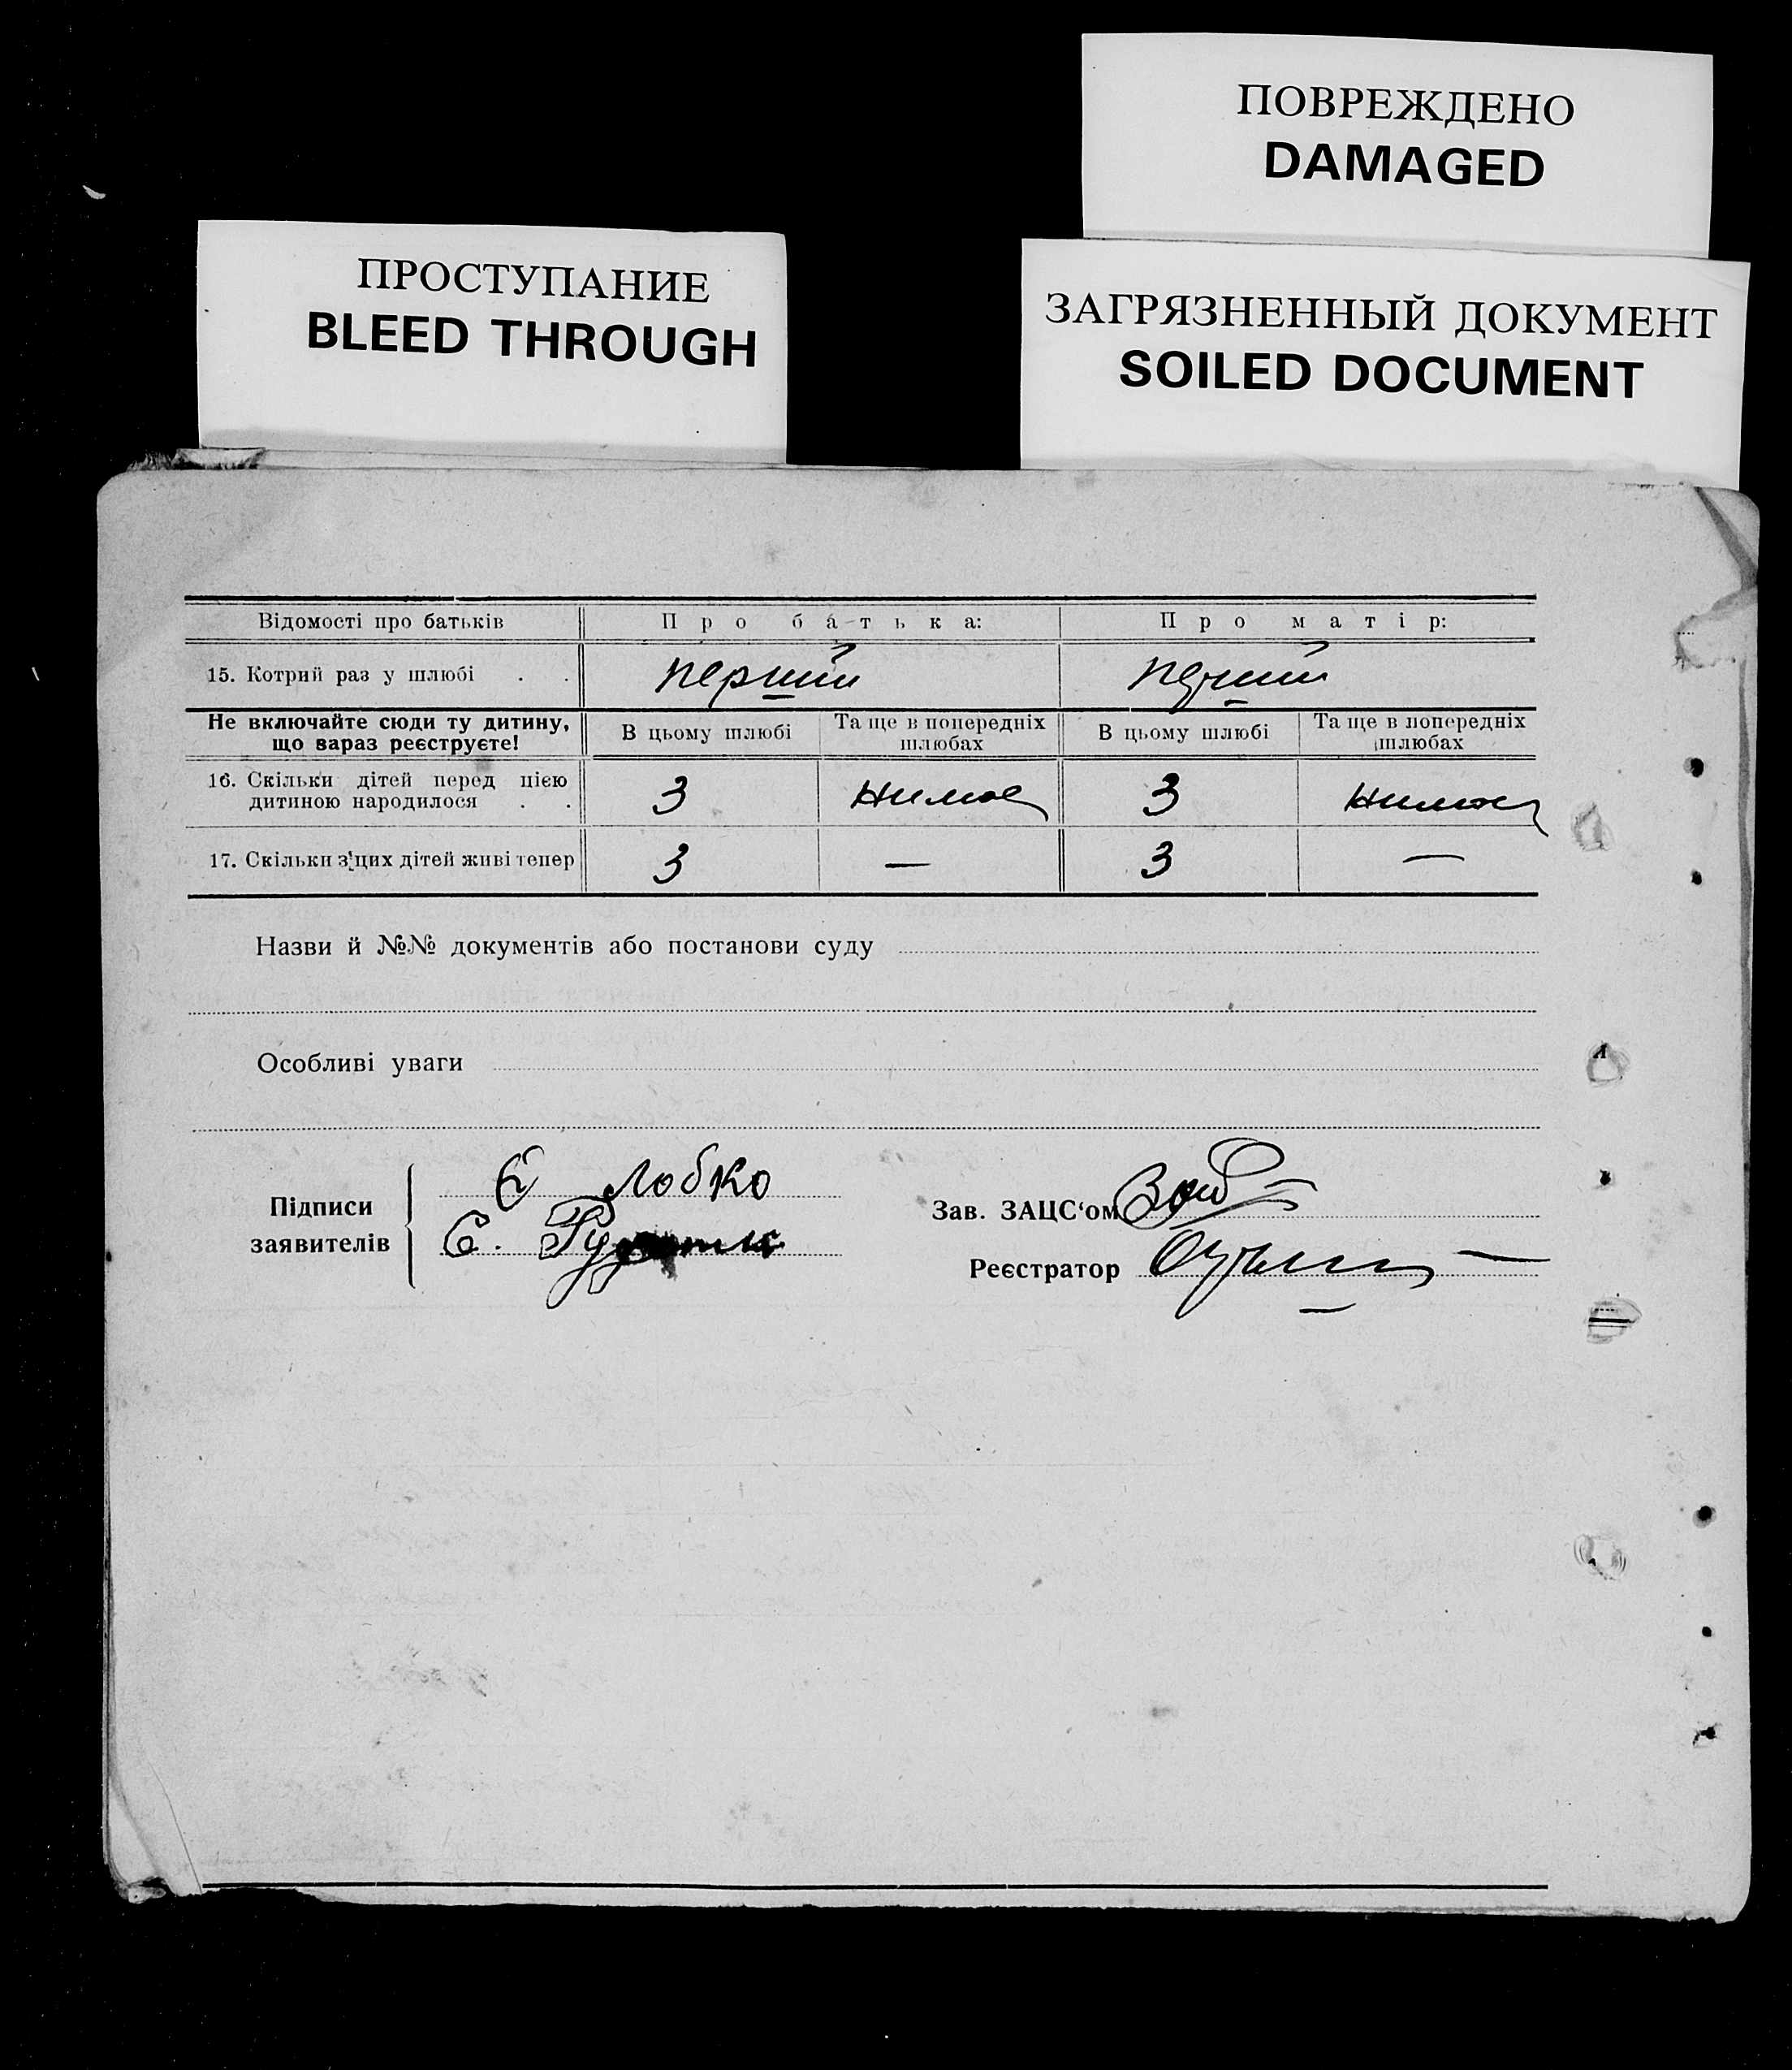 ПОВРЕЖДЕНО
DAMAGED
ПРОСТУПАНИЕ
BLEED THROUGH
ЗАГРЯЗНЕННЫЙ ДОКУМЕНТ
SOILED DOCUMENT
Відомості про батьків Про батька: Про матір:
15. Котрий раз у шлюбі . . перший перший
Не включайте сюди ту дитину, що вараз реєструєте! В цьому шлюбі Та ще в попередніх шлюбах В цьому шлюбі Та ще в попередніх шлюбах
16. Скільки дітей перед цією
дитиною народилося . . 3 нимає 3 нимає
17. Скільки з цих дітей живі тепер 3 — 3 —
Назви й №№ документів або постанови суду
Особливі уваги
Підписи
заявителів
Є Лобко
Є.
Зав. ЗАЦС‘ом
Реєстратор